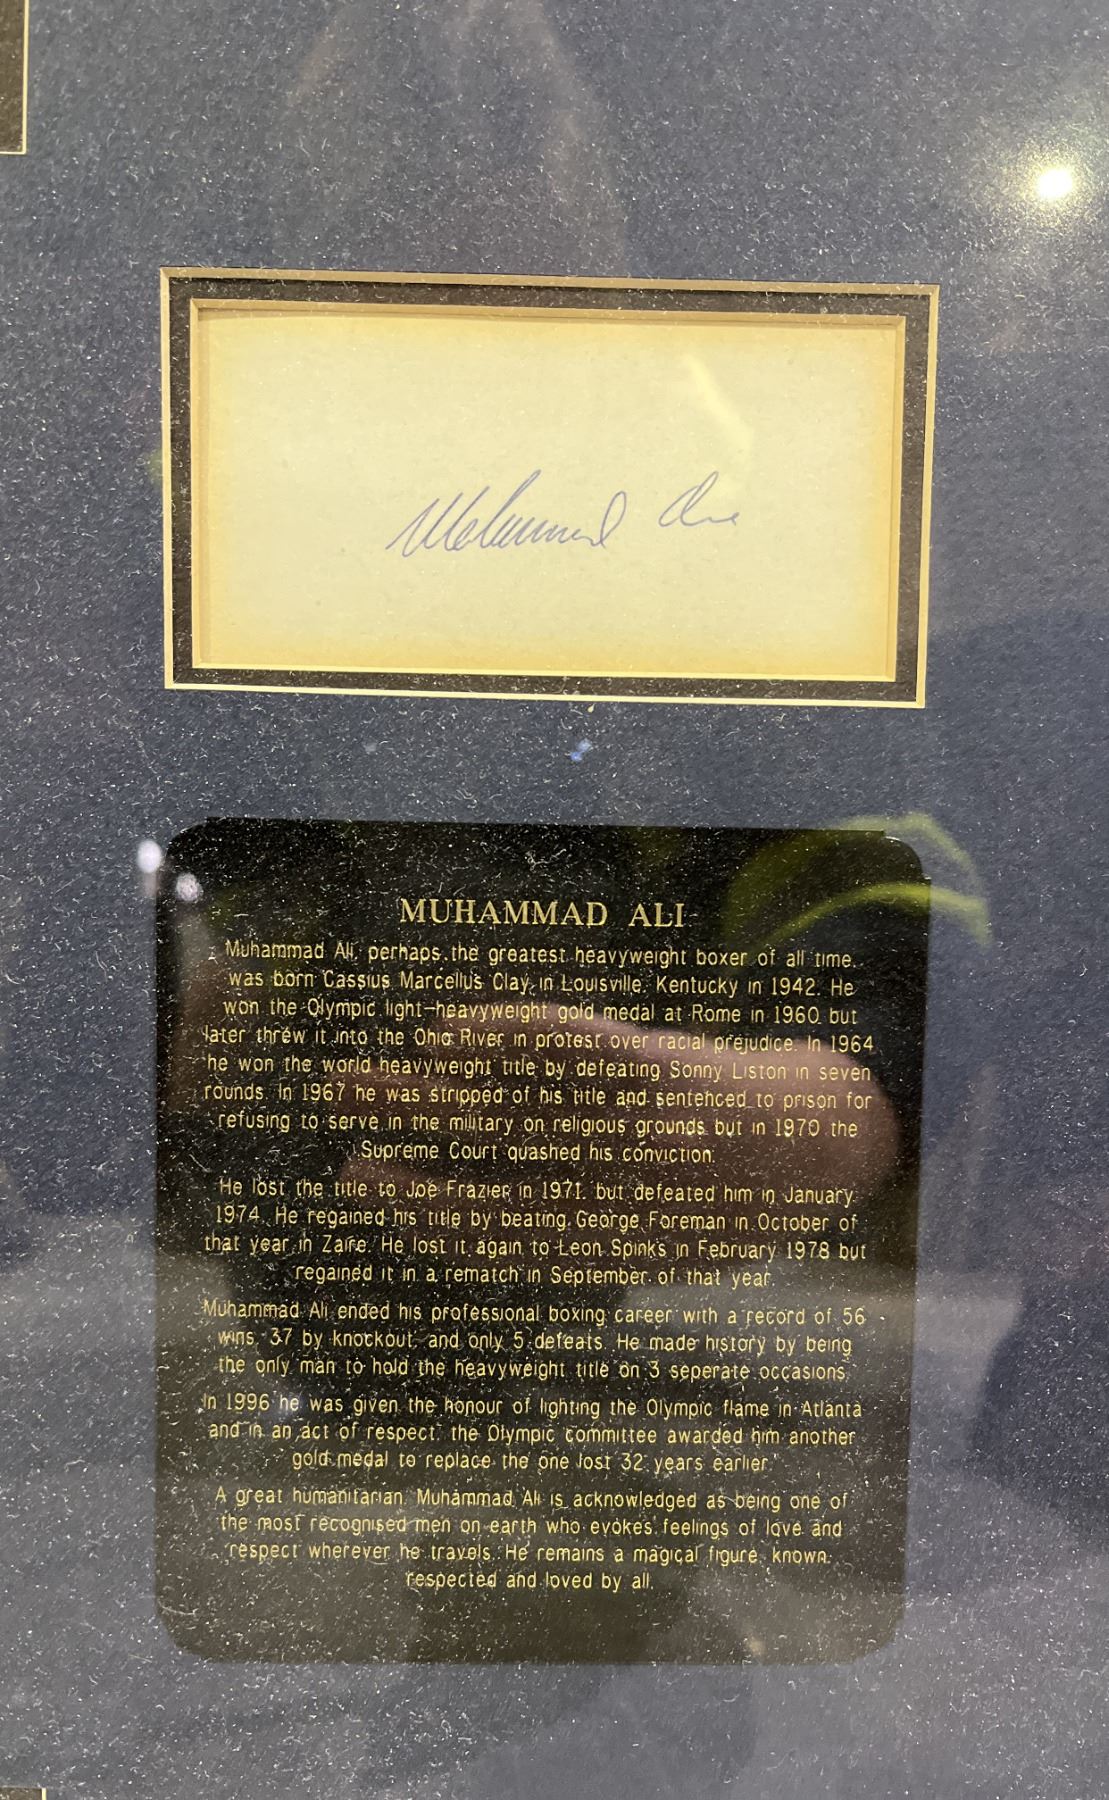 Muhammad Ali
MUHAMMAD ALI
Muhammad Ali, perhaps the greatest heavyweight boxer of all time,
was born Cassius Marcellus Clay, in Louisville, Kentucky in 1942. He
won the Olympic light-heavyweight gold medal at Rome in 1960 but
later threw it into the Ohio River in protest over racial prejudice. In 1964
he won the world heavyweight title by defeating Sonny Liston in seven
rounds. In 1967 he was stripped of his title and sentenced to prison for
refusing to serve in the military on religious grounds but in 1970 the
Supreme Court quashed his conviction.
He lost the title to Joe Frazier in 1971, but defeated him in January
1974. He regained his title by beating George Foreman in October of
that year in Zaire. He lost it again to Leon Spinks in February 1978 but
regained it in a rematch in September of that year.
Muhammad Ali ended his professional boxing career with a record of 56
wins, 37 by knockout, and only 5 defeats. He made history by being
the only man to hold the heavyweight title on 3 seperate occasions.
In 1996 he was given the honour of lighting the Olympic flame in Atlanta
and in an act of respect, the Olympic committee awarded him another
gold medal to replace the one lost 32 years earlier.
A great humanitarian, Muhammad Ali is acknowledged as being one of
the most recognised men on earth who evokes feelings of love and
respect wherever he travels. He remains a magical figure, known,
respected and loved by all.